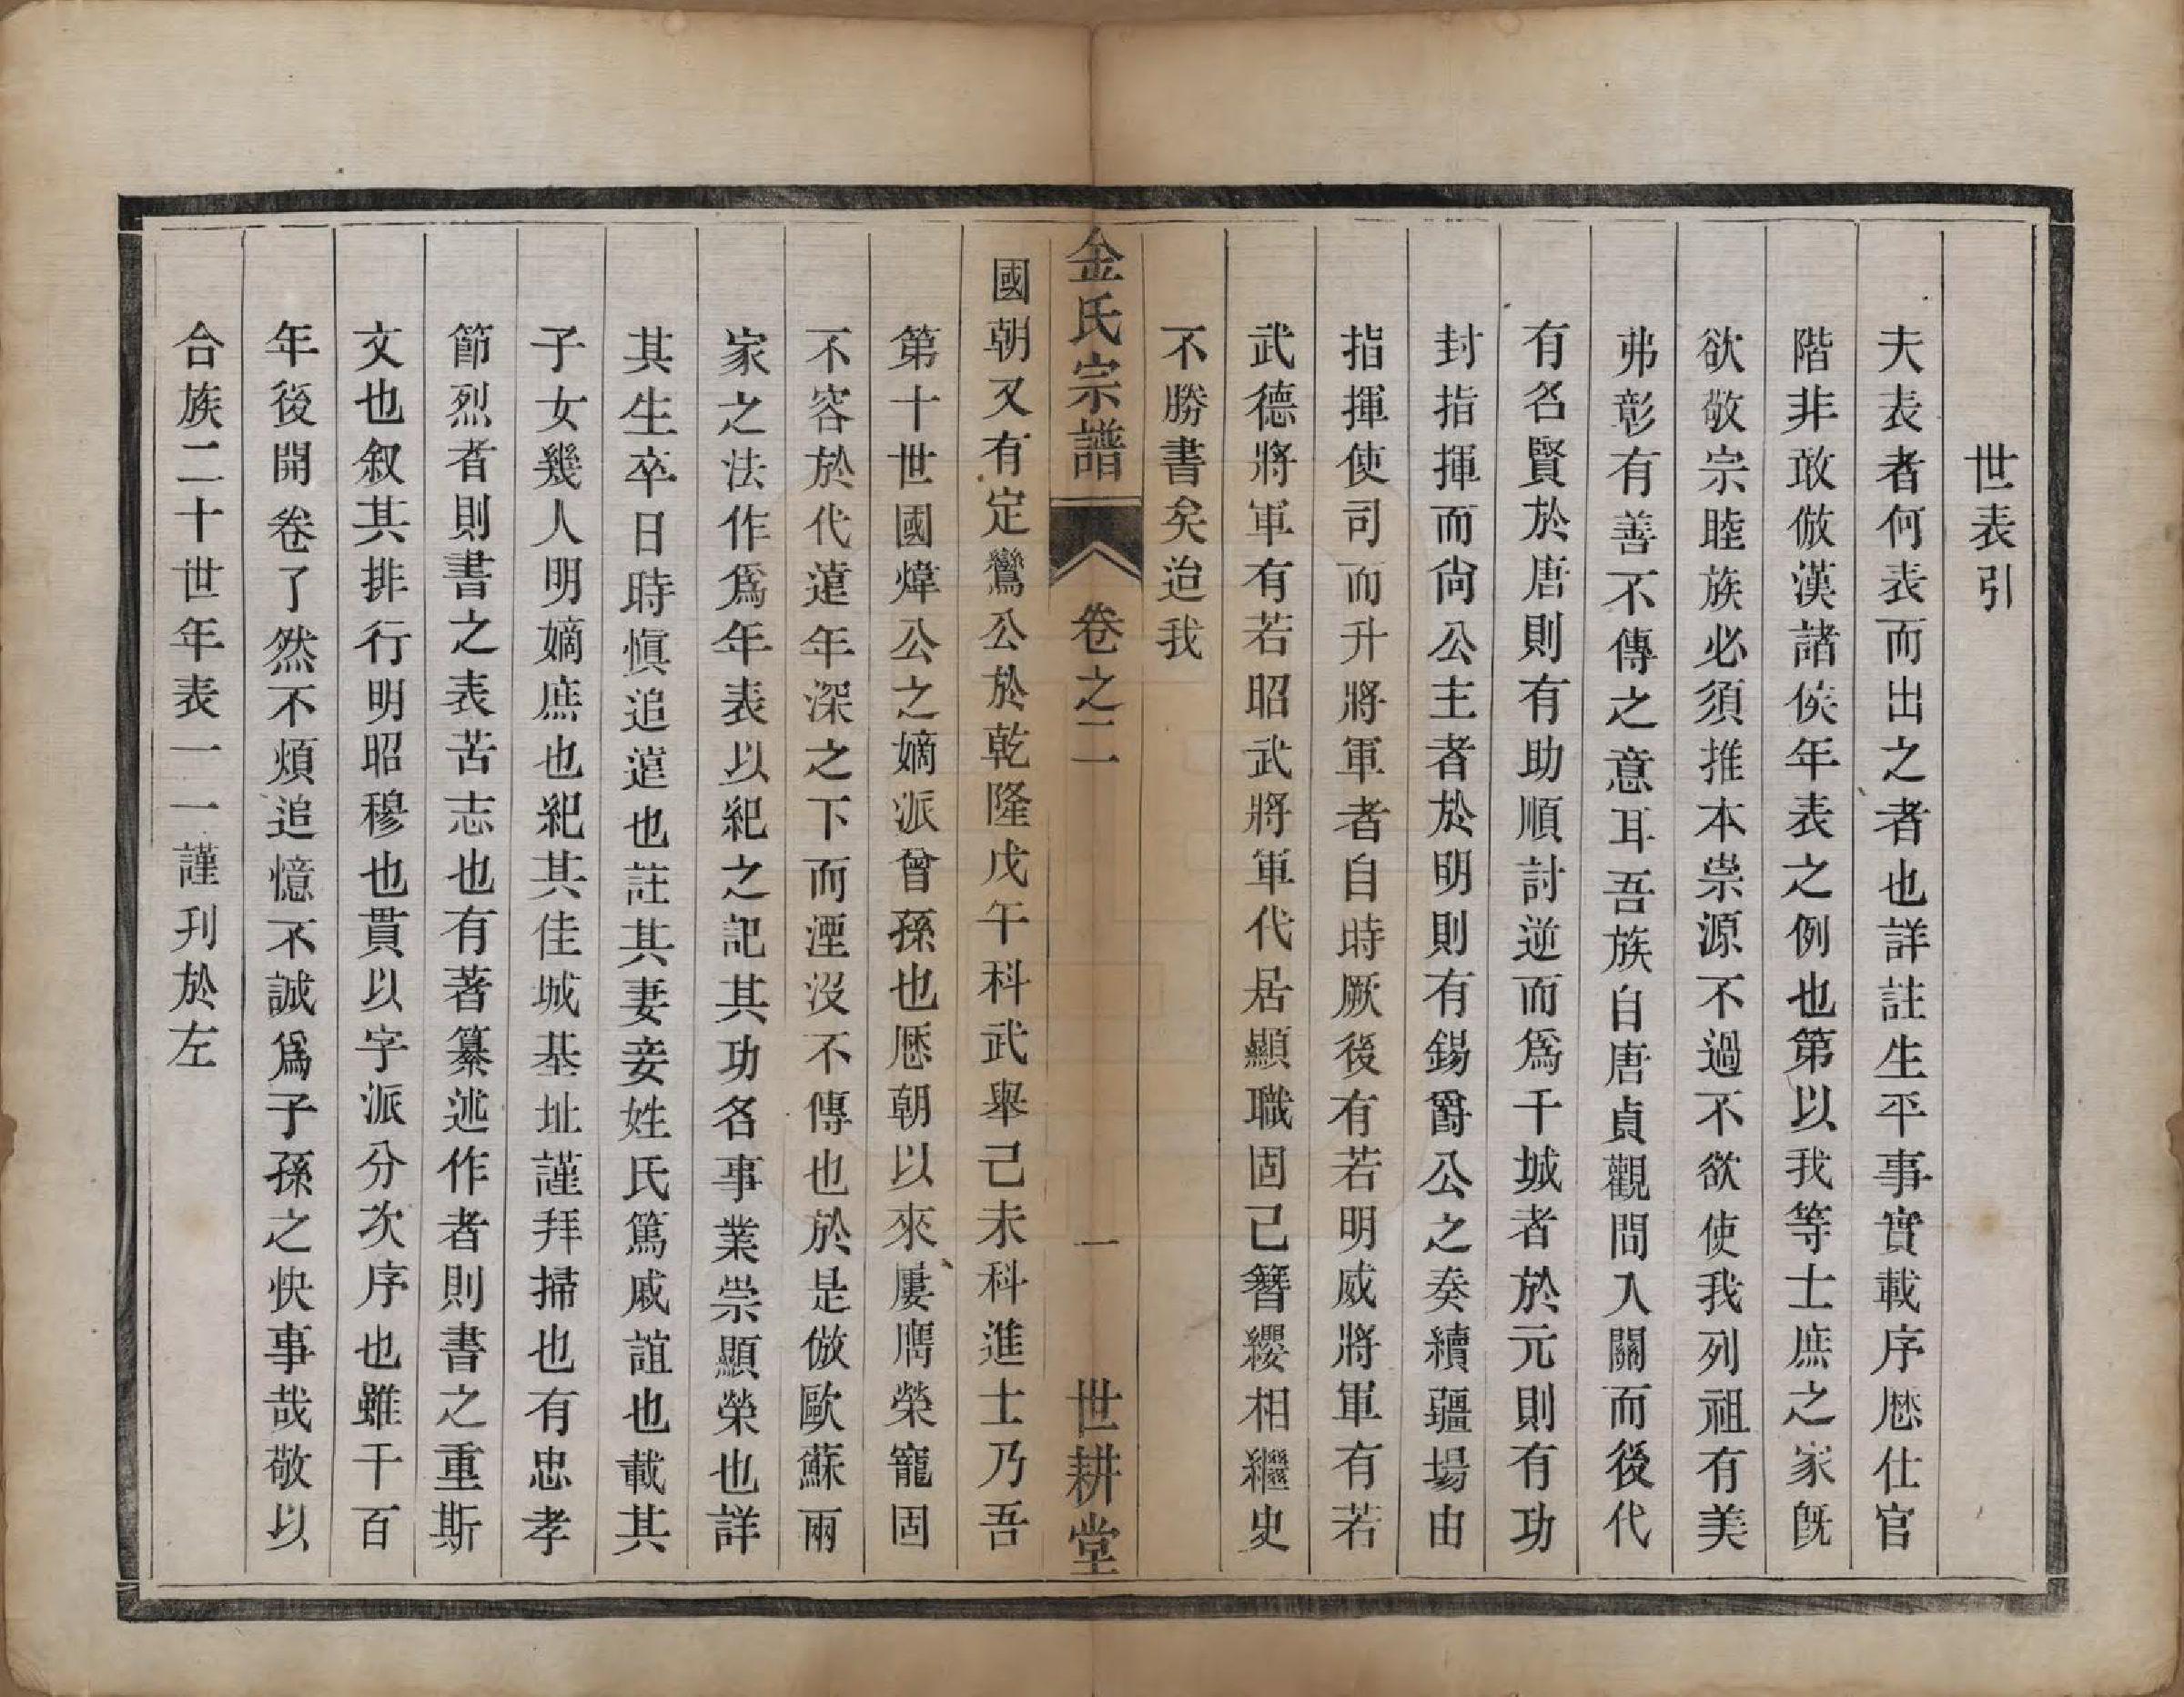 世表引
夫表者何表而出之者也詳註生平事實載序厯仕官
階非敢倣漢諸侯年表之例也第以我等士庶之家旣
欲敬宗睦族必須推本崇源不過不欲使我列祖有美
弗彰有善不傳之意耳吾族自唐貞觀間入關而後代
有名賢於唐則有助順討逆而爲干城者於元則有功
封指揮而尙公主者於明則有錫爵公之奏續疆場由
指揮使司而升將軍者自時厥後有若明威將軍有若
武德將軍有若昭武將軍代居顯職固己簪纓相繼史
不勝書矣迨我
金氏宗譜 卷之二 一 世耕堂
國朝又有定鸞公於乾隆戊午科武舉己未科進士乃吾
第十世國煒公之嫡派曾孫也厯朝以來屢膺榮寵固
不容於代遠年深之下而湮沒不傳也於是倣歐蘇兩
家之法作爲年表以紀之記其功名事業崇顯榮也詳
其生卒日時愼追遠也註其妻妾姓氏篤戚誼也載其
子女幾人明嫡庶也紀其佳城基址謹拜掃也有忠孝
節烈者則書之表苦志也有著纂述作者則書之重斯
文也叙其排行明昭穆也貫以字派分次序也雖千百
年後開卷了然不煩追憶不誠爲子孫之快事哉敬以
合族二十世年表一一謹刊於左